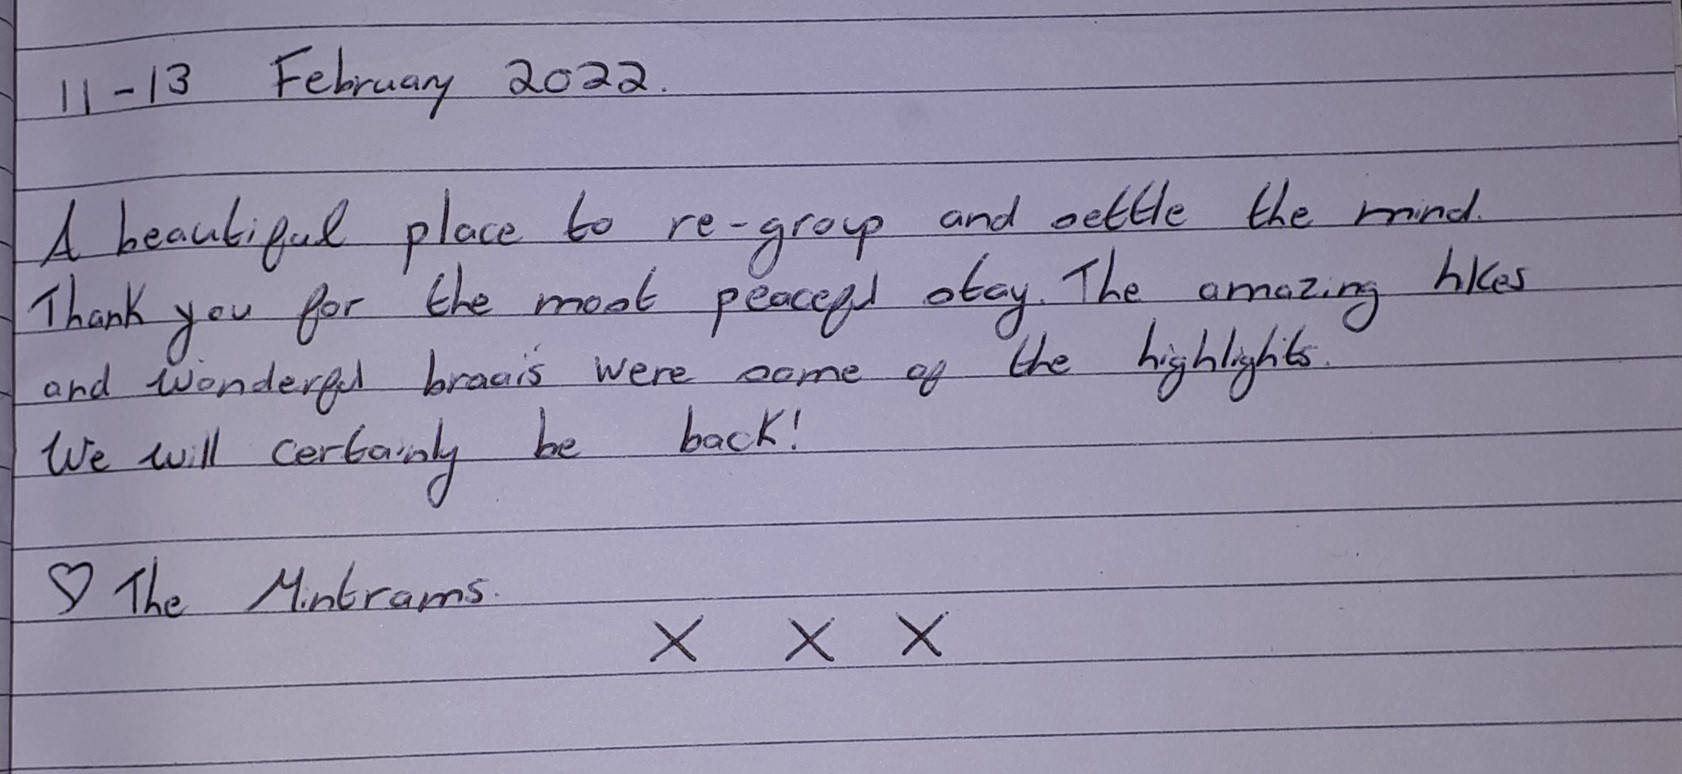 11-13 February 2022.
A beautiful place to re-group and settle the mind.
Thank you for the most peaceful stay. The amazing hikes
and wonderful braais were some of the highlights.
We will certainly be back!
♡ The Mintrams.
X X X